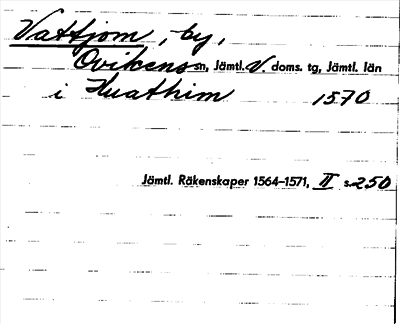 Vattjom, by,
Ovikens sn, Jämtl. V. doms. tg, Jämtl. län
i Huathim 1570
Jämtl. Räkenskaper 1564–1571, II s. 250